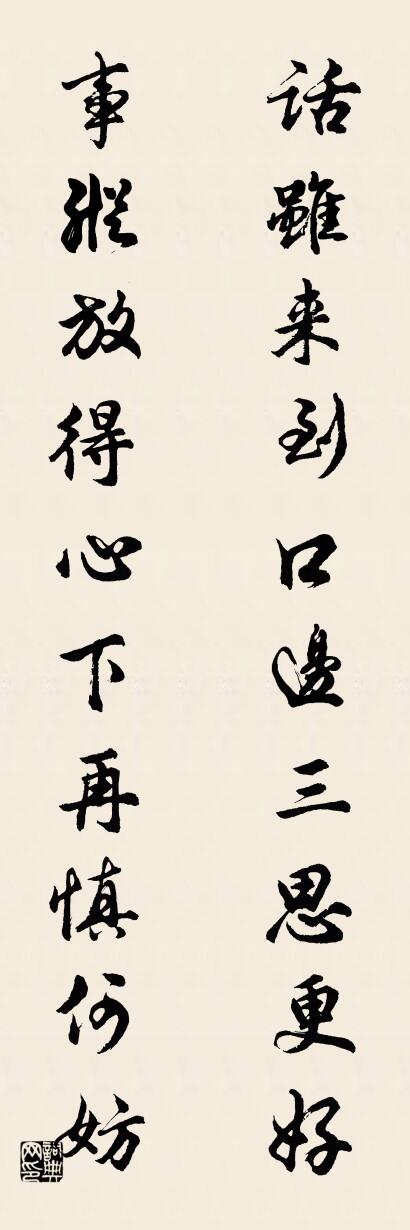 話雖来到口邊三思更好
事縱放得心下再慎何妨